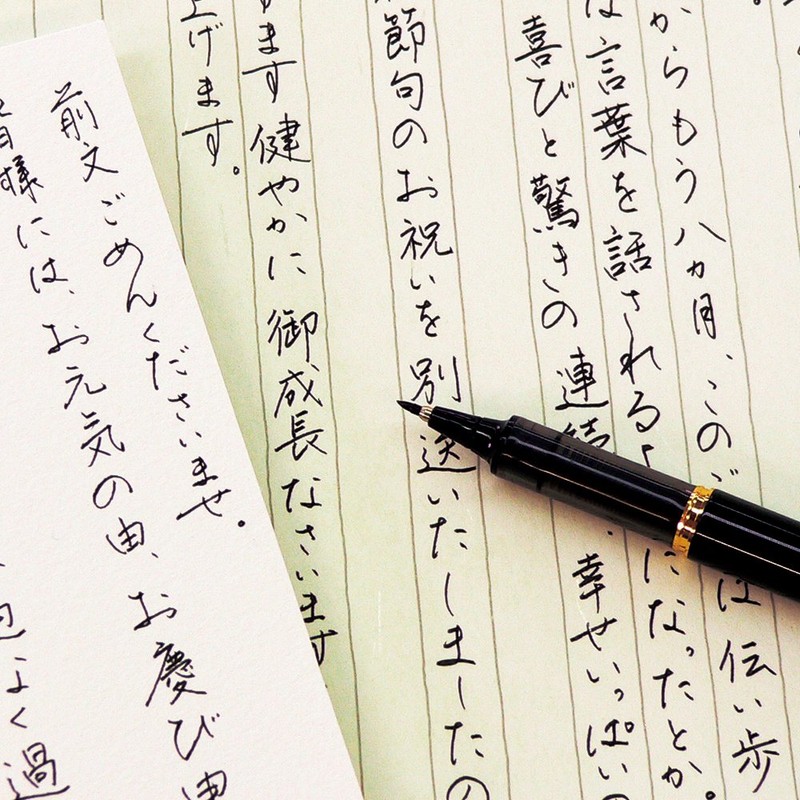 からもう八ヵ月、このご は伝い歩
は言葉を話される になったとか。
喜びと驚きの連続 幸せいっぱいの
節句のお祝いを別送いたしましたの
ます健やかに御成長なさいます
上げます。
前文ごめんくださいませ。
皆様には、お元気の由、お慶び申
く過